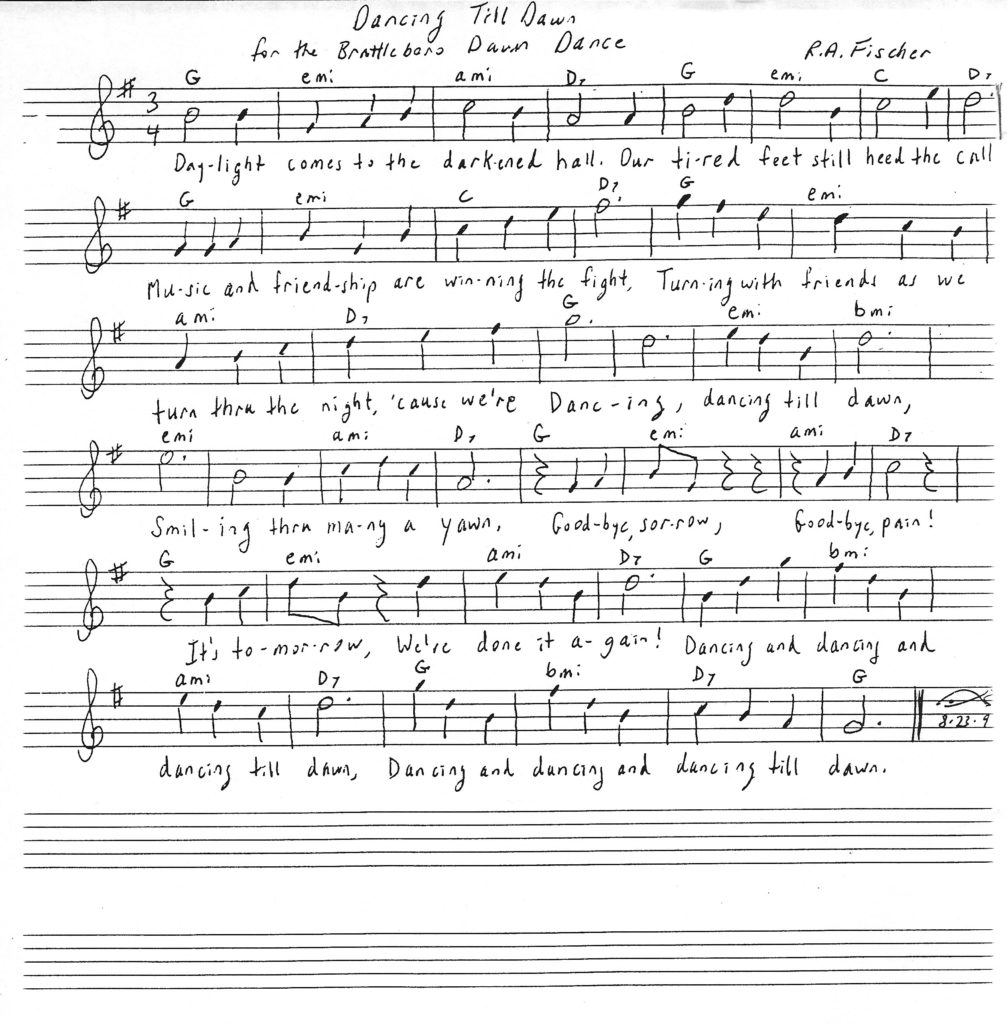 Dancing Till Dawn
for the Brattleboro Dawn Dance R.A. Fischer
G emi ami D7 G emi C D7
3
4
Day-light comes to the dark-ened hall. Our ti-red feet still heed the call
G emi C D7 G emi
Mu-sic and friend-ship are win-ning the fight, Turn-ing with friends as we
ami D7 G emi bmi
turn thru the night, 'cause we're Danc-ing, dancing till dawn,
emi ami D7 G emi ami D7
Smil-ing thru ma-ny a yawn. Good-bye, sor-row, Good-bye, pain!
G emi ami D7 G bmi
It's to-mor-row, We've done it a-gain! Dancing and dancing and
ami D7 G bmi D7 G
8-23-9
dancing till dawn, Dancing and dancing and dancing till dawn.